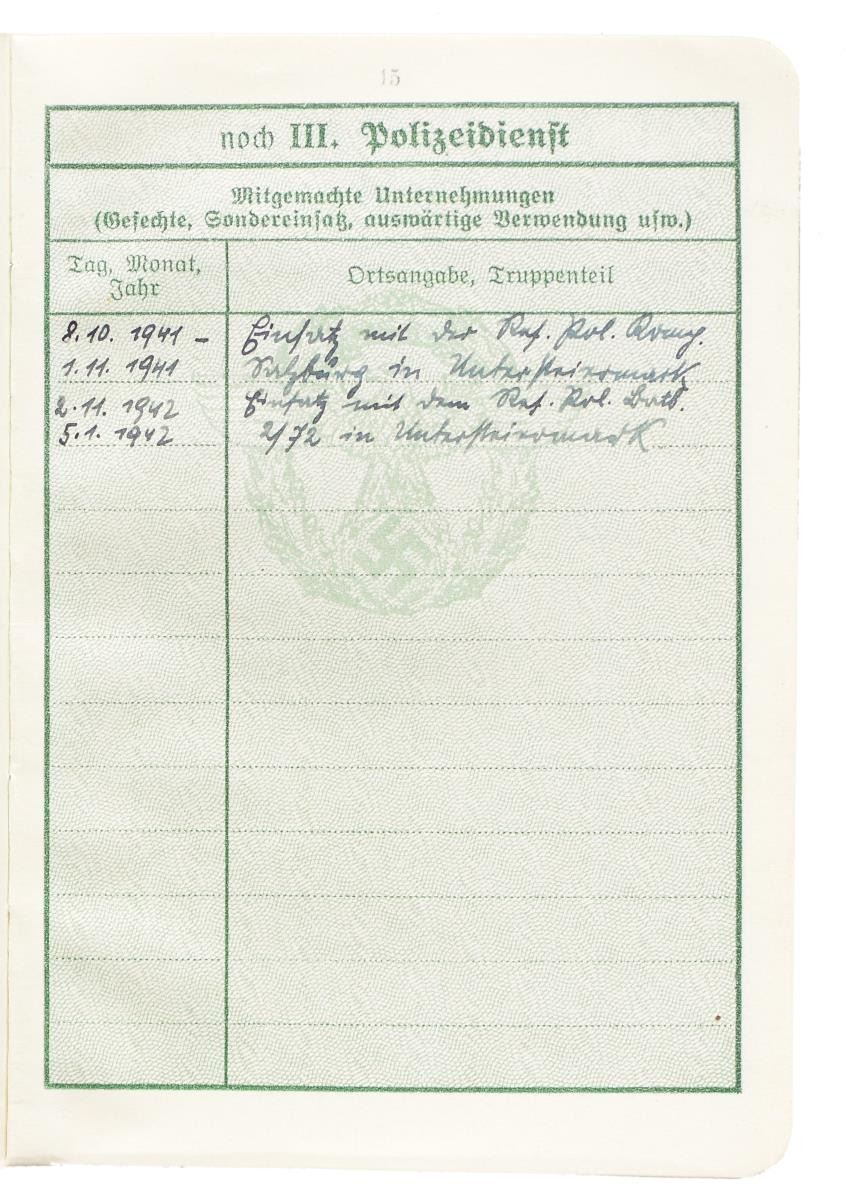 15
noch III. Polizeidienst
Mitgemachte Unternehmungen
(Gefechte, Sondereinsatz, auswärtige Verwendung usw.)
Tag, Monat,
Jahr
Ortsangabe, Truppenteil
8.10. 1941 – Einsatz mit der Res. Pol. Komp.
1.11. 1941 Salzburg in Untersteiermark
2.11. 1942 Einsatz mit dem Res. Pol. Batl.
5.1. 1942 2/72 in Untersteiermark